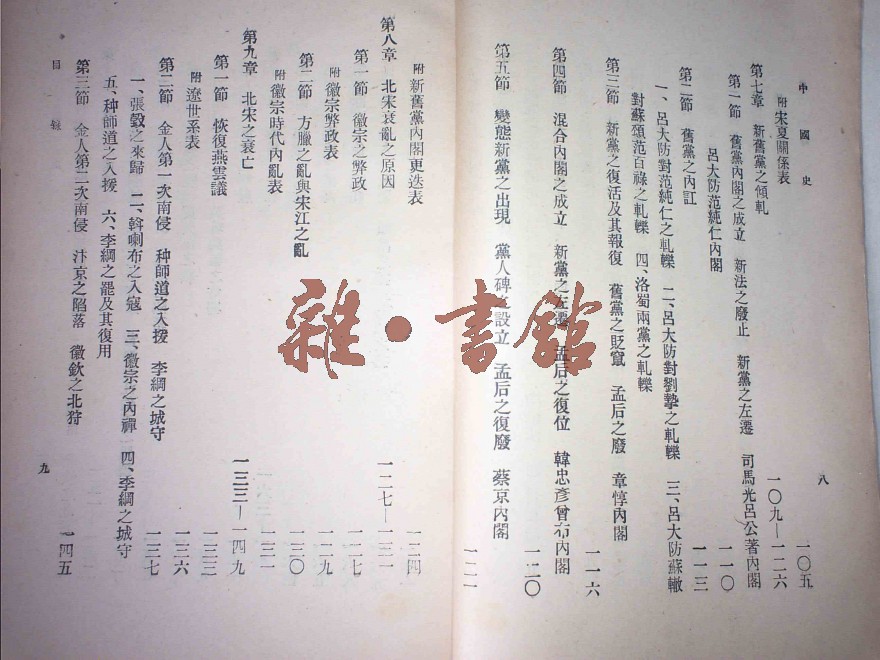 中國史
八
附 宋夏關係表
一〇五
第七章 新舊黨之傾軋
一〇九—一二六
第一節 舊黨內閣之成立 新法之廢止 新黨之左遷 司馬光呂公著內閣
呂大防范純仁內閣
一一〇
第二節 舊黨之內訌
一一三
一、呂大防對范純仁之軋轢 二、呂大防對劉摯之軋轢 三、呂大防蘇轍
對蘇頌范百祿之軋轢 四、洛蜀兩黨之軋轢
第三節 新黨之復活及其報復 舊黨之貶竄 孟后之廢 章惇內閣
一一六
第四節 混合內閣之成立 新黨之左遷 孟后之復位 韓忠彥曾布內閣
一二〇
第五節 變態新黨之出現 黨人碑之設立 孟后之復廢 蔡京內閣
一二一
附 新舊黨內閣更迭表
一二四
第八章 北宋衰亂之原因
一二七—一三一
第一節 徽宗之弊政
一二七
附 徽宗弊政表
一二九
第二節 方臘之亂與宋江之亂
一三〇
附 徽宗時代內亂表
一三一
第九章 北宋之衰亡
一三三—一四九
第一節 恢復燕雲議
一三三
附 遼世系表
一三六
第二節 金人第一次南侵 种師道之入援 李綱之城守
一三七
一、張瑴之來歸 二、斡喇布之入寇 三、徽宗之內禪 四、李綱之城守
五、种師道之入援 六、李綱之罷及其復用
第三節 金人第二次南侵 汴京之陷落 徽欽之北狩
一四五
目錄
九
雜·書館